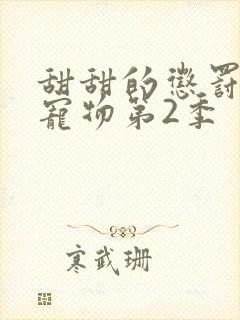 甜甜的懲罰
寵物第2季
寒武珊